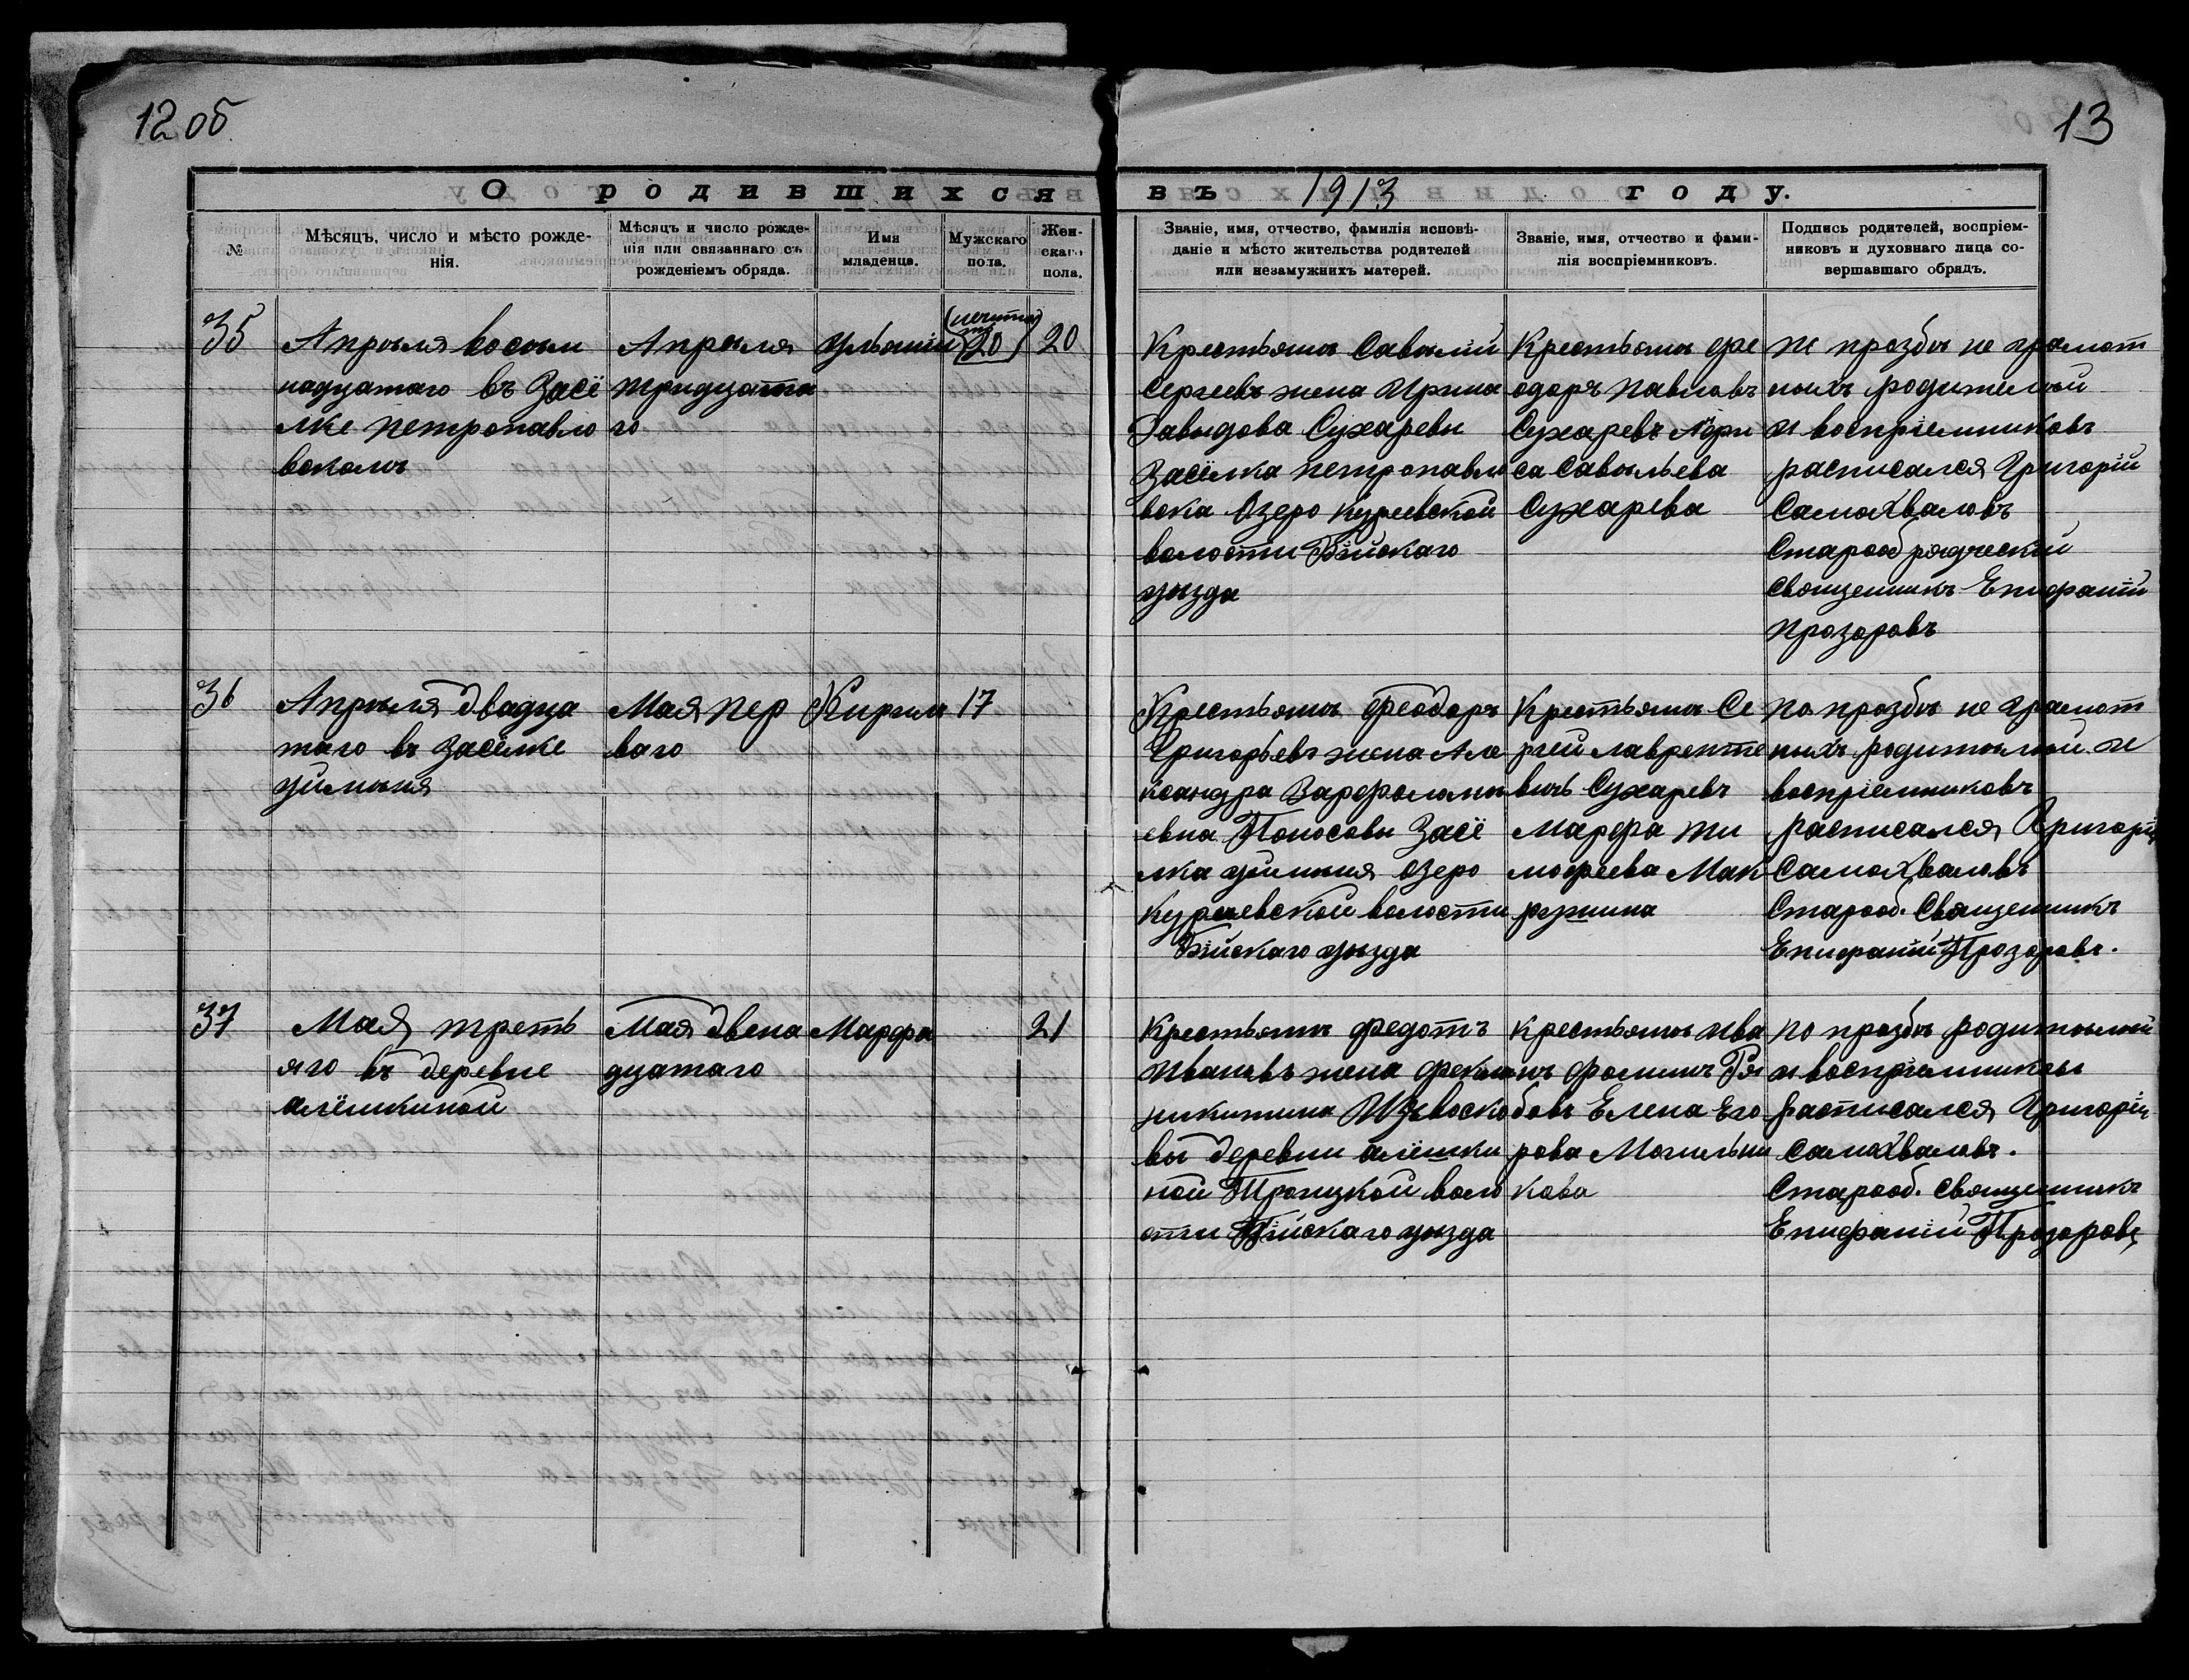 12 об
13
О родившихся въ 1913 году.
№
Мѣсяцъ, число и мѣсто рожде-
нія.
Мѣсяцъ и число рожде-
нія или связаннаго съ
рожденіемъ обряда.
Имя
младенца.
Мужскаго
пола.
Жен-
скаго
пола.
Званіе, имя, отчество, фамилія исповѣ-
даніе и мѣсто жительства родителей
или незамужнихъ матерей.
Званіе, имя, отчество и фами-
лія воспріемниковъ.
Подпись родителей, воспріем-
никовъ и духовнаго лица со-
вершавшаго обрядъ.
35
Апрыля восьм
надцатаго въ Засё
лке петропавло
вскомъ
Апрыля
тридцата
го
20
20
Крестьянъ Савылій
Сергеевъ жена Ирина
Давыдова Сухаревы
Засёлка петропавло
вска Озеро Куреевской
волости Бійскаго
уызда
Крестьянъ фе
одоръ павловъ
Сухаревъ
са Савыльева
Сухарева
прозбы не грамот
ныхъ родителей
и воспріемниковъ
расписался Григорій
Самохваловъ
Старообрядческій
священникъ Епифаній
прозоровъ
36
Апрыля двадца
таго въ засёлке
уймыня
Мая пер
ваго
Кирил
17
Крестьянъ феодоръ
Григорьевъ жена Але
ксандра Варфоломы
евна Поносовы Засё
лка уймыня озеро
куреевской волости
Бійскаго уызда
Крестьянъ Се
ргей лавренте
вичъ Сухаревъ
Марфа ти
мофеева Мак
рушина
по прозбы не грамот
ныхъ родитылей и
воспріемниковъ
расписался Григорій
Самохваловъ
Стaрооб. Священникъ
Епифаній Прозоровъ.
37
Мая треть
яго въ деревне
алёшкиной
Мая двена
дцатаго
Марфа
21
Крестьянъ федотъ
Ивановъ жена фекла
никитина Извоско
вы деревни алёшки
ной Троицкой воло
сти Бійскаго уызда
крестьянъ Ива
нъ фоминъ Ря
бовъ Елена Его
рова Могильни
кова
по прозбы родитылей
и воспріемникы
расписался Григорій
Самохваловъ.
Старооб. священникъ
Епифаній Прозоровъ